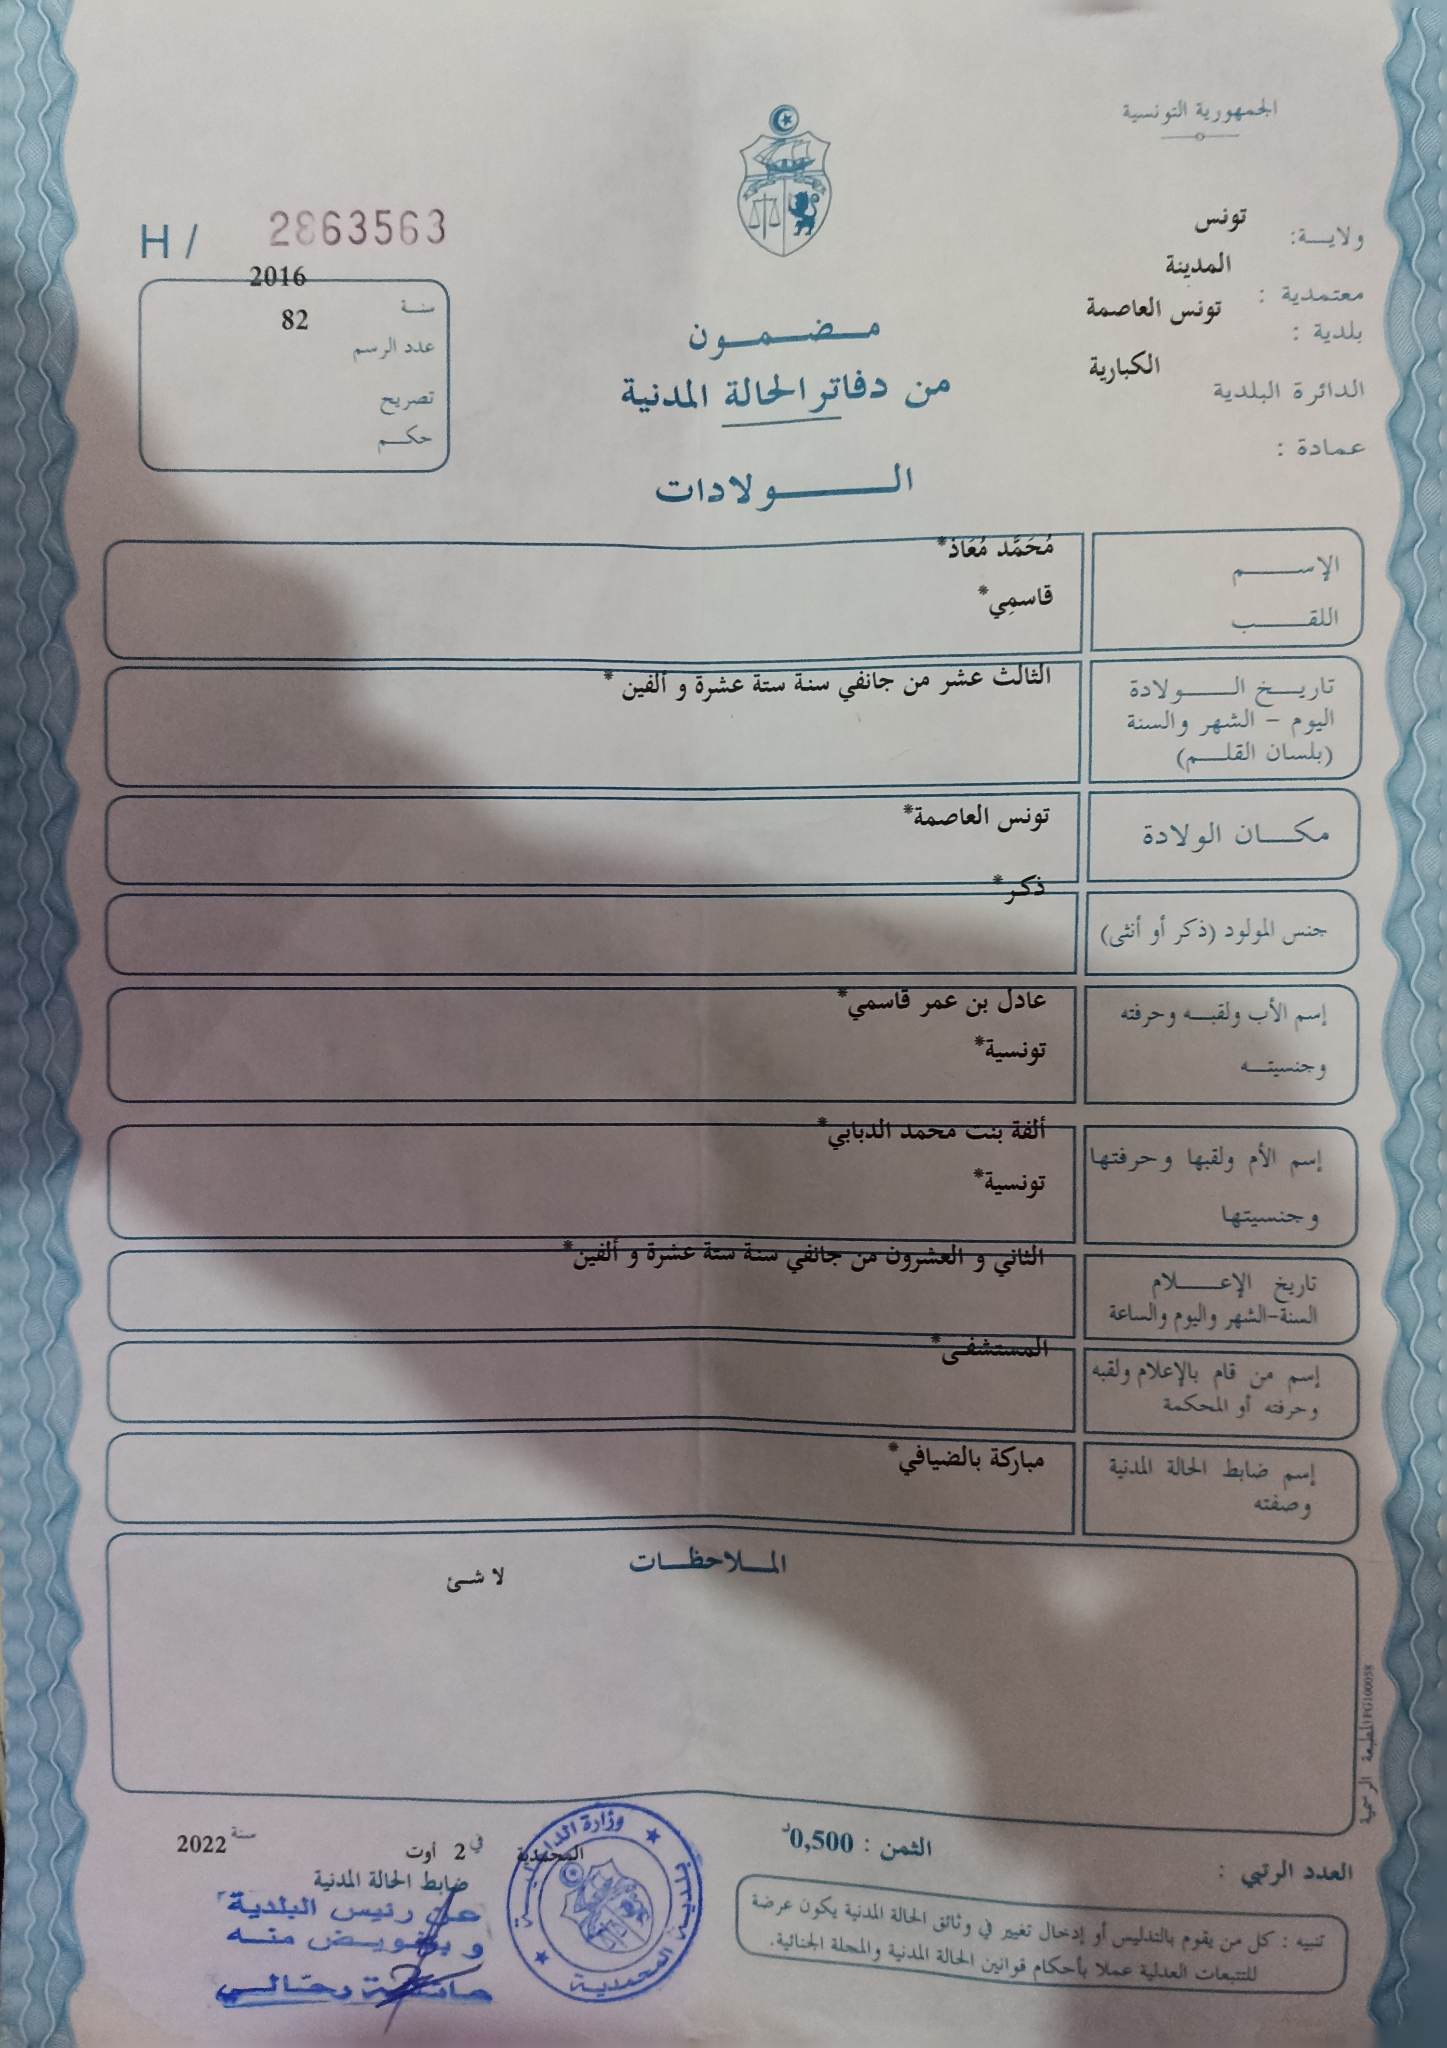 الجمهورية التونسية
ولايـــة: تونس
معتمدية : المدينة
بلدية : تونس العاصمة
الدائرة البلدية الكبارية
عمادة :
H / 2863563
سنـــة 2016
عدد الرسم 82
تصريح
حكـــم
مـــضـــمـــون
من دفاتر الحالة المدنية
الـــــولادات
الإســـــم مُحَمَّد مُعَاذ*
اللقـــــب قاسمِي*
تاريـــخ الـــــولادة الثالث عشر من جانفي سنة ستة عشرة و ألفين *
اليوم - الشهر والسنة
(بلسان القلـــم)
مكـــان الولادة تونس العاصمة*
جنس المولود (ذكر أو أنثى) ذكر*
إسم الأب ولقبـــه وحرفته عادل بن عمر قاسمي*
وجنسيتـــه تونسية*
إسم الأم ولقبها وحرفتها ألفة بنت محمد الدبابي*
وجنسيتها تونسية*
تاريخ الإعـــــلام الثاني و العشرون من جانفي سنة ستة عشرة و ألفين*
السنة-الشهر واليوم والساعة
إسم من قام بالإعلام ولقبه المستشفى*
وحرفته أو المحكمة
إسم ضابط الحالة المدنية مباركة بالضيافي*
وصفته
المـــلاحظـــات
لا شئ
المطبعة الرسمية FG100058
العدد الرتبي :
الثمن : 0,500د
تنبيه : كل من يقوم بالتدليس أو إدخال تغيير في وثائق الحالة المدنية يكون عرضة
للتتبعات العدلية عملا بأحكام قوانين الحالة المدنية والمجلة الجنائية.
المحمدية في 2 أوت سنة 2022
ضابط الحالة المدنية
عن رئيس البلدية
و بتفويض منه
رحالي
وزارة الداخلية
المحمدية